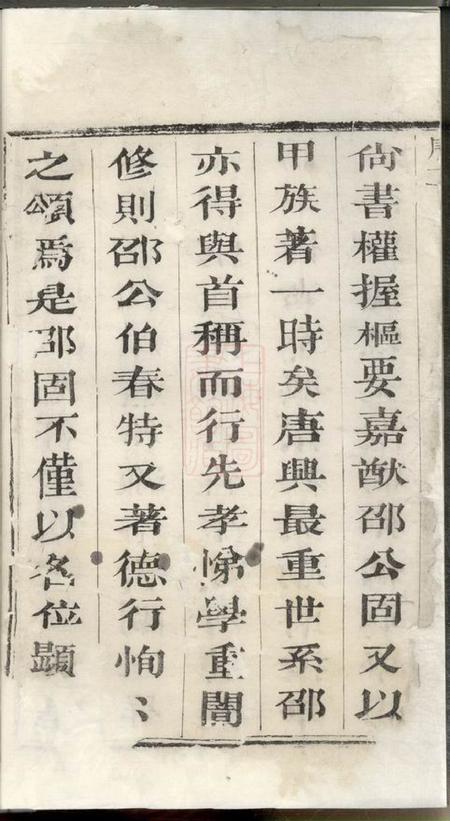 尙書權握樞要嘉猷邵公固又以
甲族著一時矣唐興最重世系邵
亦得與首稱而行先孝悌學重闇
修則邵公伯春特又著德行恂〻
之頌爲是邵固不僅以各位顯